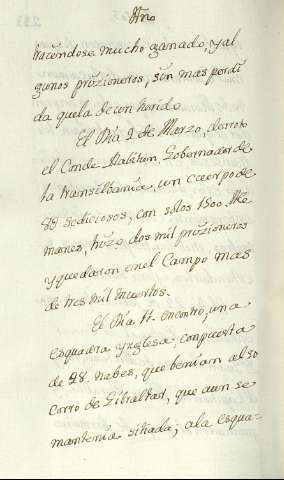 Año
trayendose mucho ganado, y al
gunos prizioneros, sin mas perdi
da que la de un herido.
El Dia 2 de Marzo, derroto
el Conde Rabitin, Gobernador de
la transilbania, un cuerpo de
8D sediciosos, con solos 1500 Ale
manes, hizo dos mil prizioneros
y quedaron en el Campo mas
de tres mil muertos.
El Dia 11. encontro, una
esquadra ynglesa, compuesta
de 28. nabes, que benian al so
corro de Gibraltar, que aun se
mantenia sitiada; a la esqua-